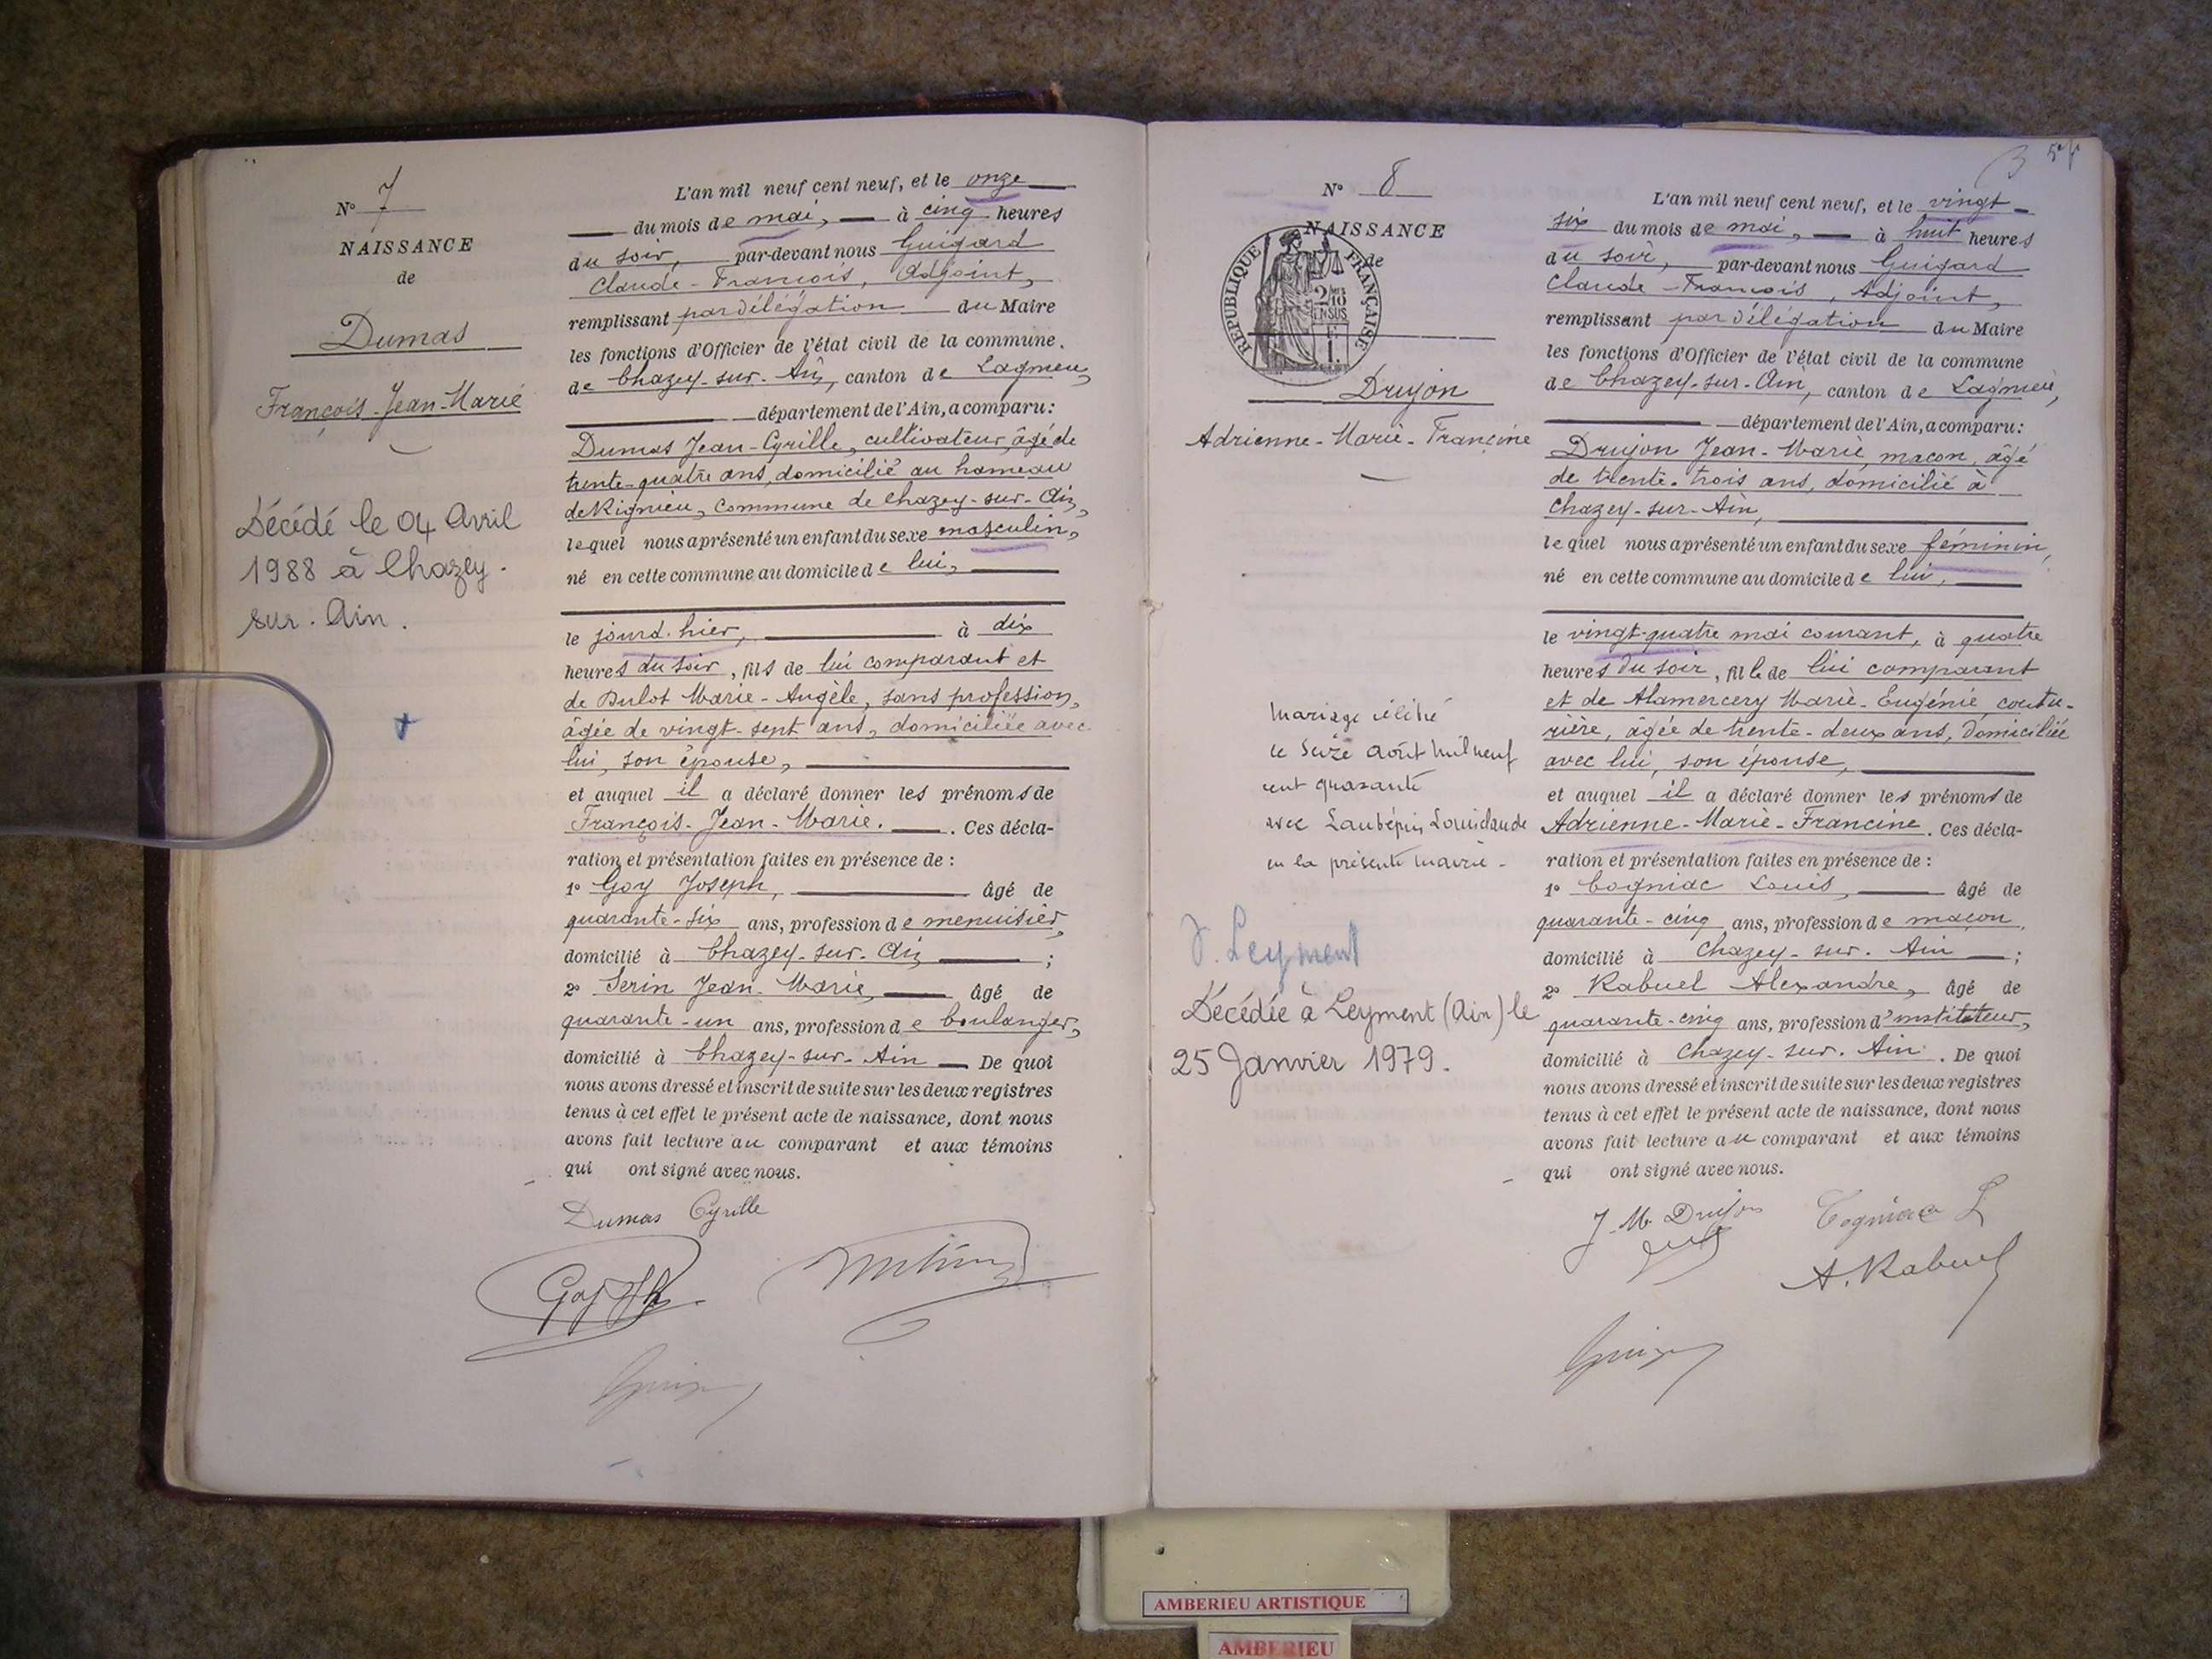 N° 7
NAISSANCE
de
Dumas
François-Jean-Marie
Décédé le 04 Avril
1988 à Chazey-
sur-Ain.
L'an mil neuf cent neuf, et le onze
du mois de mai, à cinq heures
du soir, par-devant nous Guigard
Claude-François, Adjoint,
remplissant par délégation du Maire
les fonctions d'Officier de l'état civil de la commune
de Chazey-sur-Ain, canton de Lagnieu,
département de l'Ain, a comparu:
Dumas Jean-Cyrille, cultivateur, âgé de
trente-quatre ans, domicilié au hameau
de Rignieu, Commune de Chazey-sur-Ain,
lequel nous a présenté un enfant du sexe masculin,
né en cette commune au domicile de lui,
le jourd.hier, à dix
heures du soir, fils de lui comparant et
de Bulot Marie-Angèle, sans profession,
âgée de vingt-sept ans, domiciliée avec
lui, son épouse,
et auquel il a déclaré donner les prénoms de
François-Jean-Marie. Ces décla-
ration et présentation faites en présence de :
1° Goy Joseph, âgé de
quarante-six ans, profession de menuisier,
domicilié à Chazey-sur-Ain ;
2° Serin Jean-Marie, âgé de
quarante-un ans, profession de boulanger,
domicilié à Chazey-sur-Ain De quoi
nous avons dressé et inscrit de suite sur les deux registres
tenus à cet effet le présent acte de naissance, dont nous
avons fait lecture au comparant et aux témoins
qui ont signé avec nous.
Dumas Cyrille
Goy
N° 8
NAISSANCE
de
RÉPUBLIQUE FRANÇAISE
2/10 EN SUS
1 F.
Drujon
Adrienne-Marie-Francine
Mariage célébré
le seize août mil neuf
cent quarante
avec Laubépin Louis Claude
en la présente mairie.
Leyment
Décédée à Leyment (Ain) le
25 Janvier 1979.
L'an mil neuf cent neuf, et le vingt-
six du mois de mai, à huit heures
du soir, par-devant nous Guigard
Claude-François, Adjoint,
remplissant par délégation du Maire
les fonctions d'Officier de l'état civil de la commune
de Chazey-sur-Ain, canton de Lagnieu,
département de l'Ain, a comparu:
Drujon Jean-Marie, maçon, âgé
de trente-trois ans, domicilié à
Chazey-sur-Ain,
lequel nous a présenté un enfant du sexe féminin,
né en cette commune au domicile de lui,
le vingt-quatre mai courant, à quatre
heures du soir, fille de lui comparant
et de Alamercery Marie-Eugénie, coutu-
rière, âgée de trente-deux ans, domiciliée
avec lui, son épouse,
et auquel il a déclaré donner les prénoms de
Adrienne-Marie-Francine. Ces décla-
ration et présentation faites en présence de :
1° Cogniac Louis, âgé de
quarante-cinq ans, profession de maçon,
domicilié à Chazey-sur-Ain ;
2° Rabuel Alexandre, âgé de
quarante-cinq ans, profession d'instituteur,
domicilié à Chazey-sur-Ain. De quoi
nous avons dressé et inscrit de suite sur les deux registres
tenus à cet effet le présent acte de naissance, dont nous
avons fait lecture au comparant et aux témoins
qui ont signé avec nous.
J. M. Drujon Cogniac L
A. Rabuel
AMBERIEU ARTISTIQUE
AMBERIEU